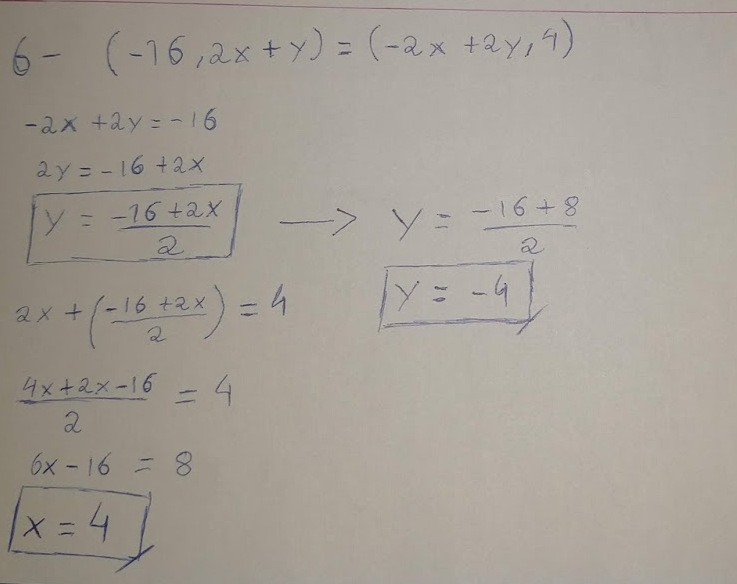 6- (-16, 2x + y) = (-2x + 2y, 4)
-2x + 2y = -16
2y = -16 + 2x
y = (-16 + 2x)/2 → y = (-16 + 8)/2
y = -4
2x + ((-16 + 2x)/2) = 4
(4x + 2x - 16)/2 = 4
6x - 16 = 8
x = 4